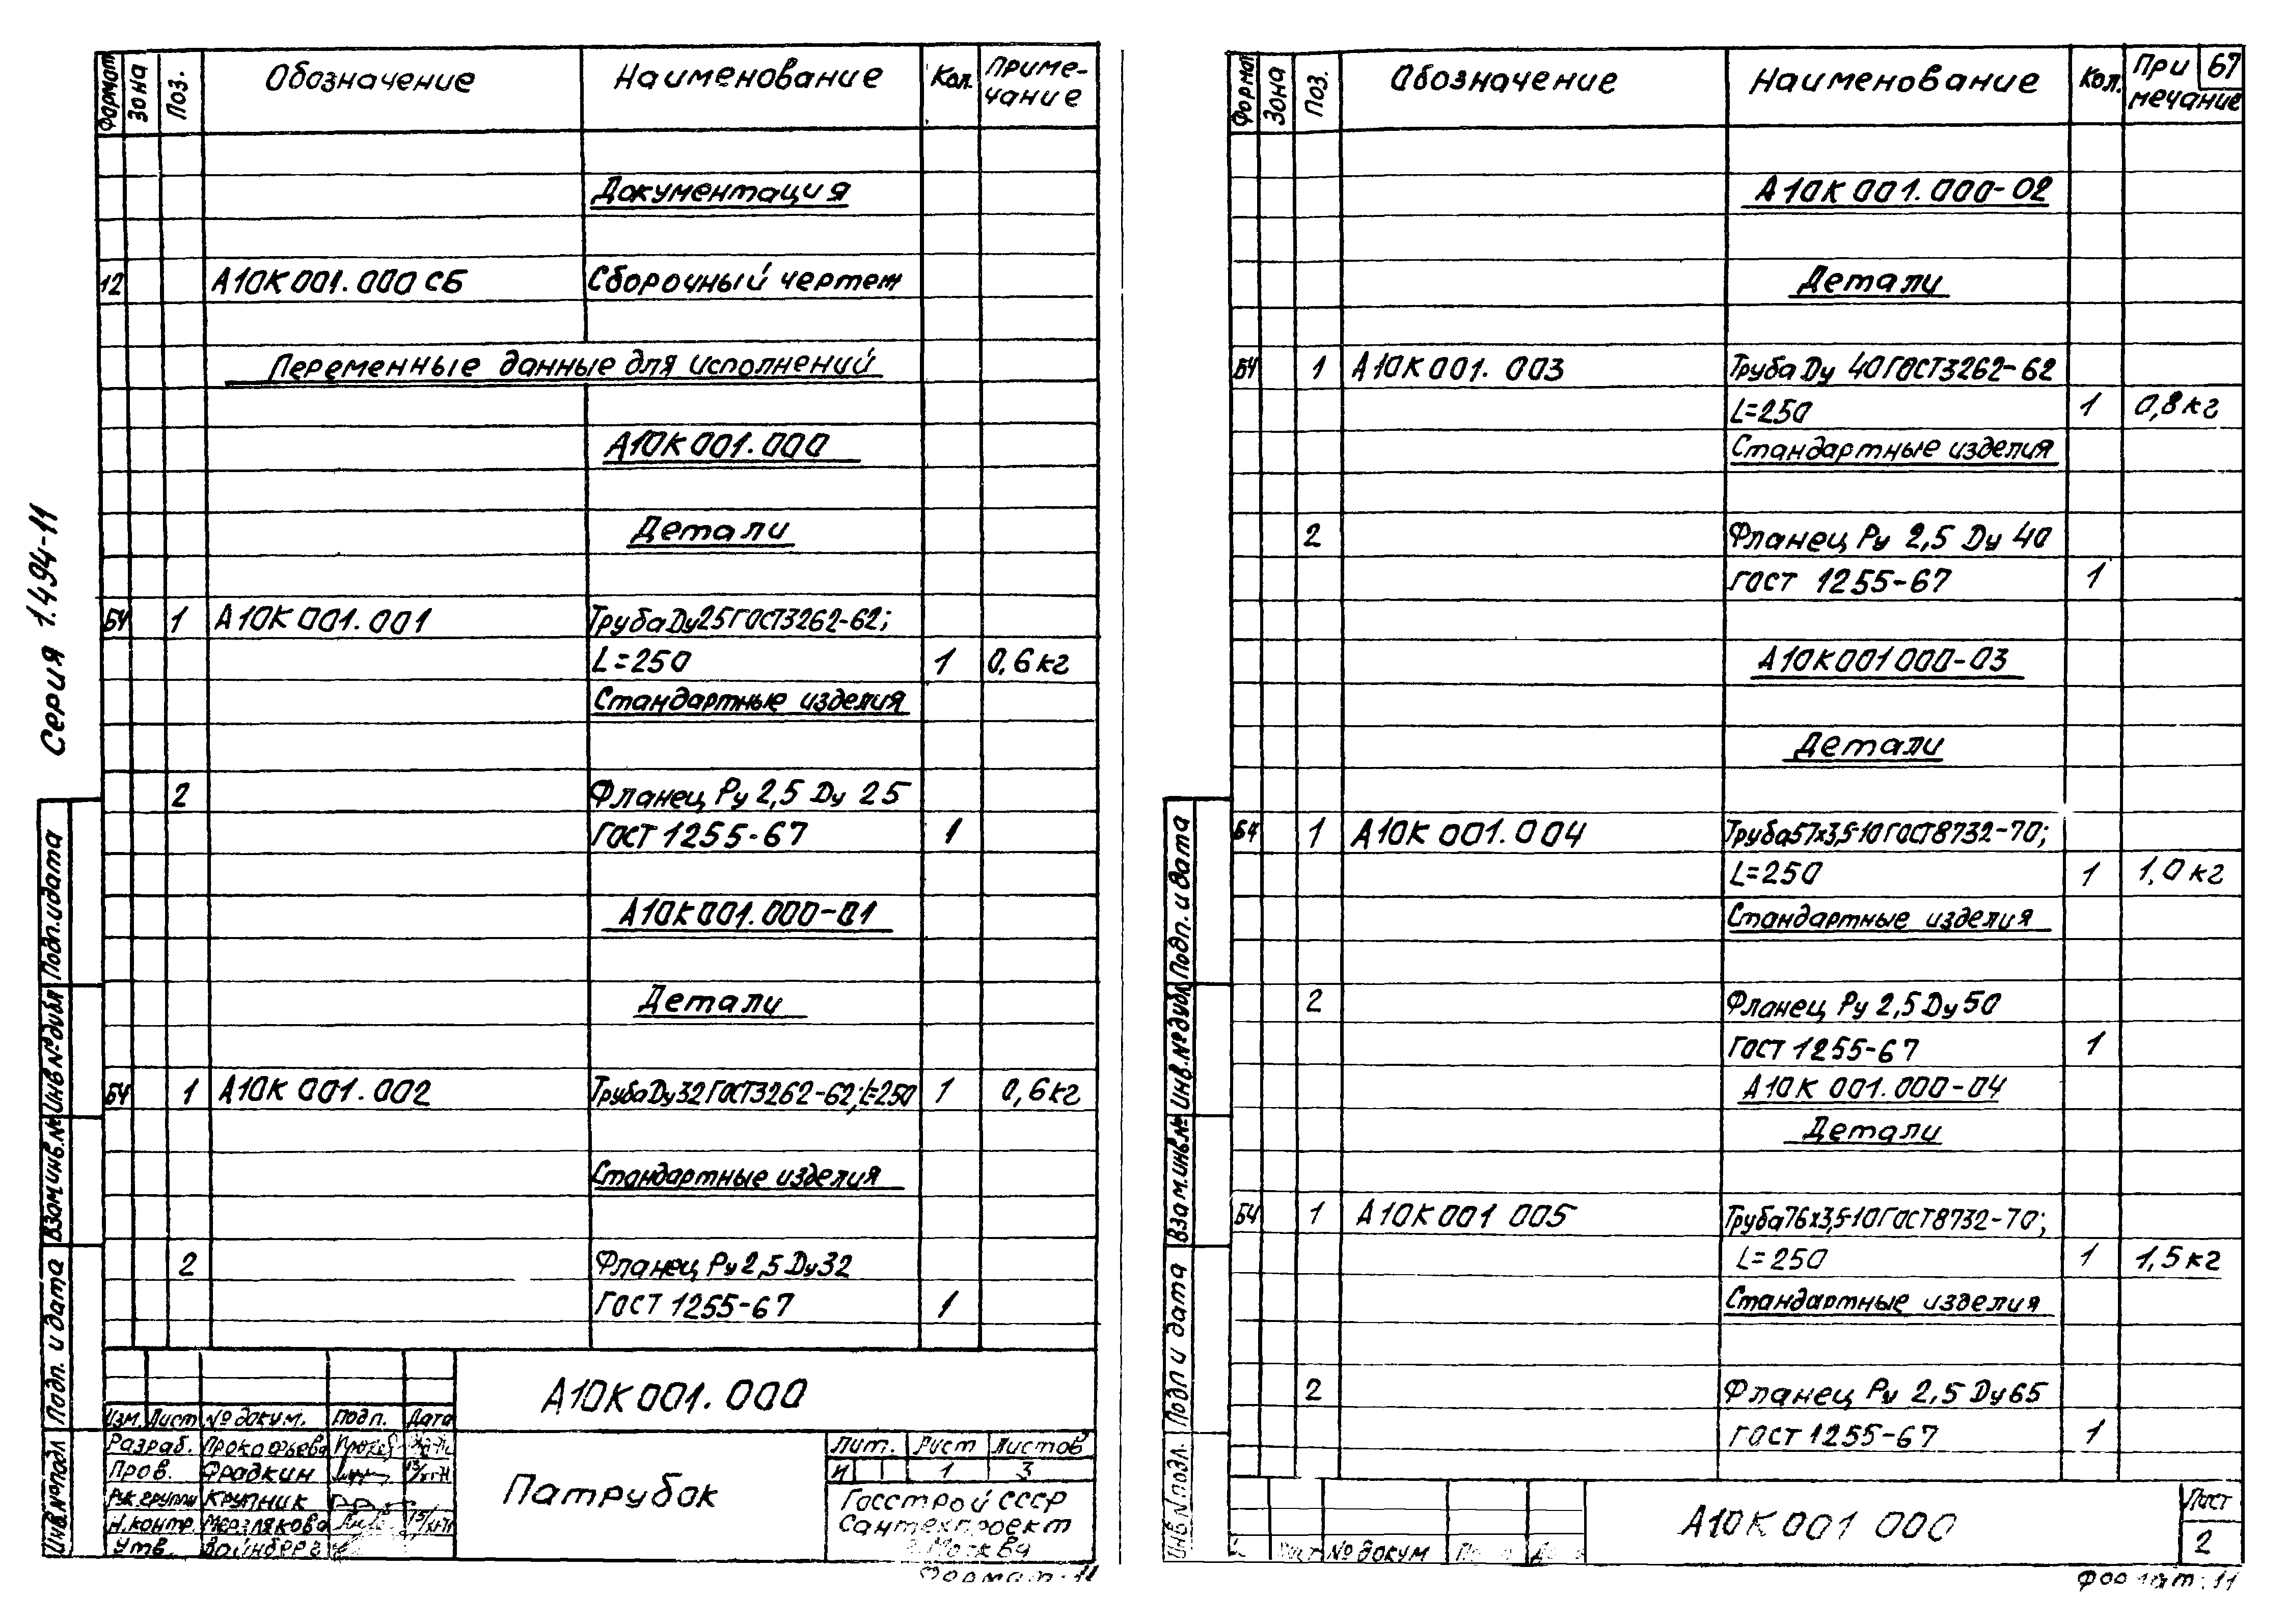 Серия 1.494-11
Формат Зона Поз. Обозначение Наименование Кол. Приме-
чание
Документация
12 А10К001.000 СБ Сборочный чертеж
Переменные данные для исполнений
А10К001.000
Детали
БЧ 1 А10К001.001 Труба Dу25 ГОСТ3262-62;
L=250 1 0,6кг
Стандартные изделия
2 Фланец Ру 2,5 Dу 25
ГОСТ 1255-67 1
А10К001.000-01
Детали
БЧ 1 А10К 001.002 Труба Dу32 ГОСТ3262-62; L=250 1 0,6кг
Стандартные изделия
2 Фланец Ру 2,5 Dу32
ГОСТ 1255-67 1
Подп. и дата
Инв.№дубл
Взам.инв.№
Подп. и дата
Инв.№подл
А10К001.000
Изм. Лист № докум. Подп. Дата
Разраб. Прокофьева
Пров. Фрадкин
Рук.группы Крупник
Н.контр. Мерзлякова
Утв. Вайнберг
Патрубок
Лит. Лист Листов
И 1 3
Госстрой СССР
Сантехпроект
г. Москва
Формат: 11
67
Формат Зона Поз. Обозначение Наименование Кол. При
мечание
А10К 001.000-02
Детали
БЧ 1 А10К001.003 Труба Dу 40 ГОСТ3262-62
L=250 1 0,8кг
Стандартные изделия
2 Фланец Ру 2,5 Dу 40
ГОСТ 1255-67 1
А10К001000-03
Детали
БЧ 1 А10К 001.004 Труба57х3,5-10 ГОСТ8732-70;
L=250 1 1,0кг
Стандартные изделия
2 Фланец Ру 2,5 Dу50
ГОСТ 1255-67 1
А10К 001.000-04
Детали
БЧ 1 А10К001 005 Труба76х3,5-10 ГОСТ8732-70;
L=250 1 1,5кг
Стандартные изделия
2 Фланец Ру 2,5 Dу65
ГОСТ 1255-67 1
Подп. и дата
Инв.№дубл
Взам.инв.№
Подп и дата
Инв.№подл.
Лист № докум
А10К001 000
Лист
2
Формат: 11